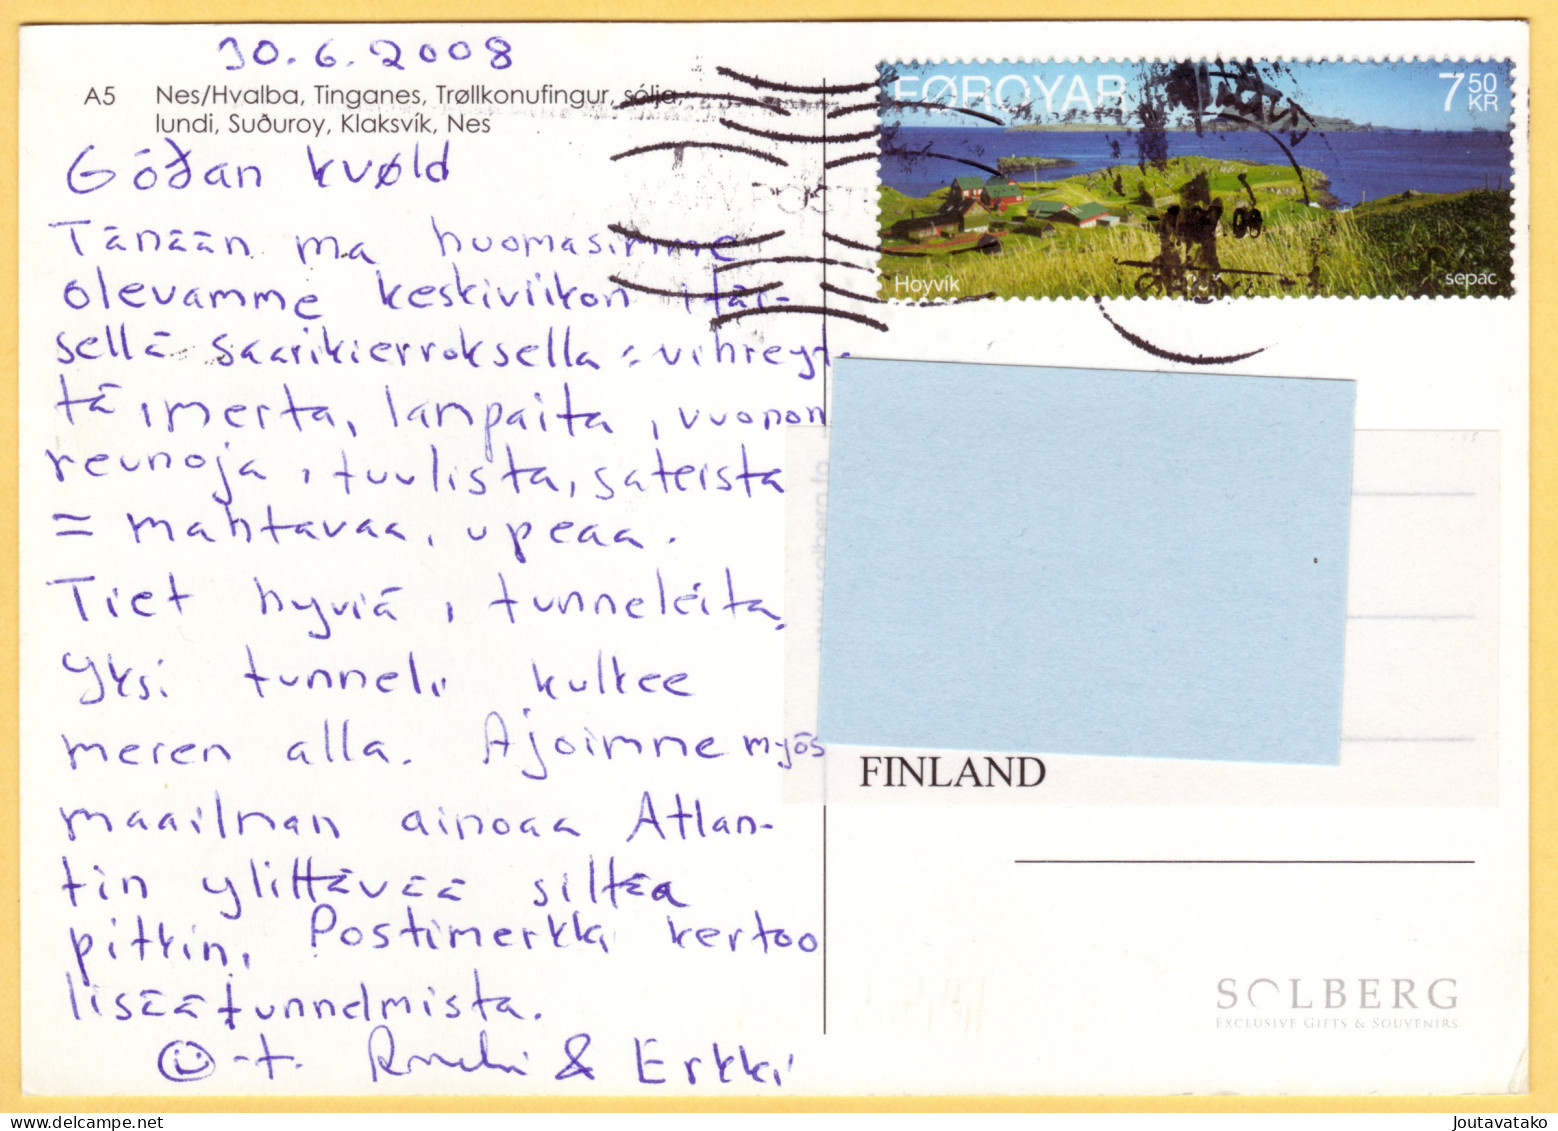 30.6.2008
A5 Nes/Hvalba, Tinganes, Trøllkonufingur, sólja,
lundi, Suðuroy, Klaksvík, Nes
Góðan kvøld
Tänään ma huomasimme
olevamme keskiviikon itäi-
sellä saarikierroksella = vihreyt-
tä, merta, lampaita, vuonon
reunoja, tuulista, sateista
= mahtavaa, upeaa.
Tiet hyviä, tunneleita.
Yksi tunneli kulkee
meren alla. Ajoimme myös
maailman ainoaa Atlan-
tin ylittävää siltaa
pitkin. Postimerkki kertoo
lisää tunnelmista.
-t. & Erkki
FØROYAR
7 50 KR
Hoyvík
sepac
FINLAND
SOLBERG
EXCLUSIVE GIFTS & SOUVENIRS
Joutavatako